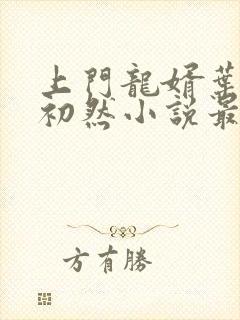 上門龍婿葉
初然小説最
方有勝